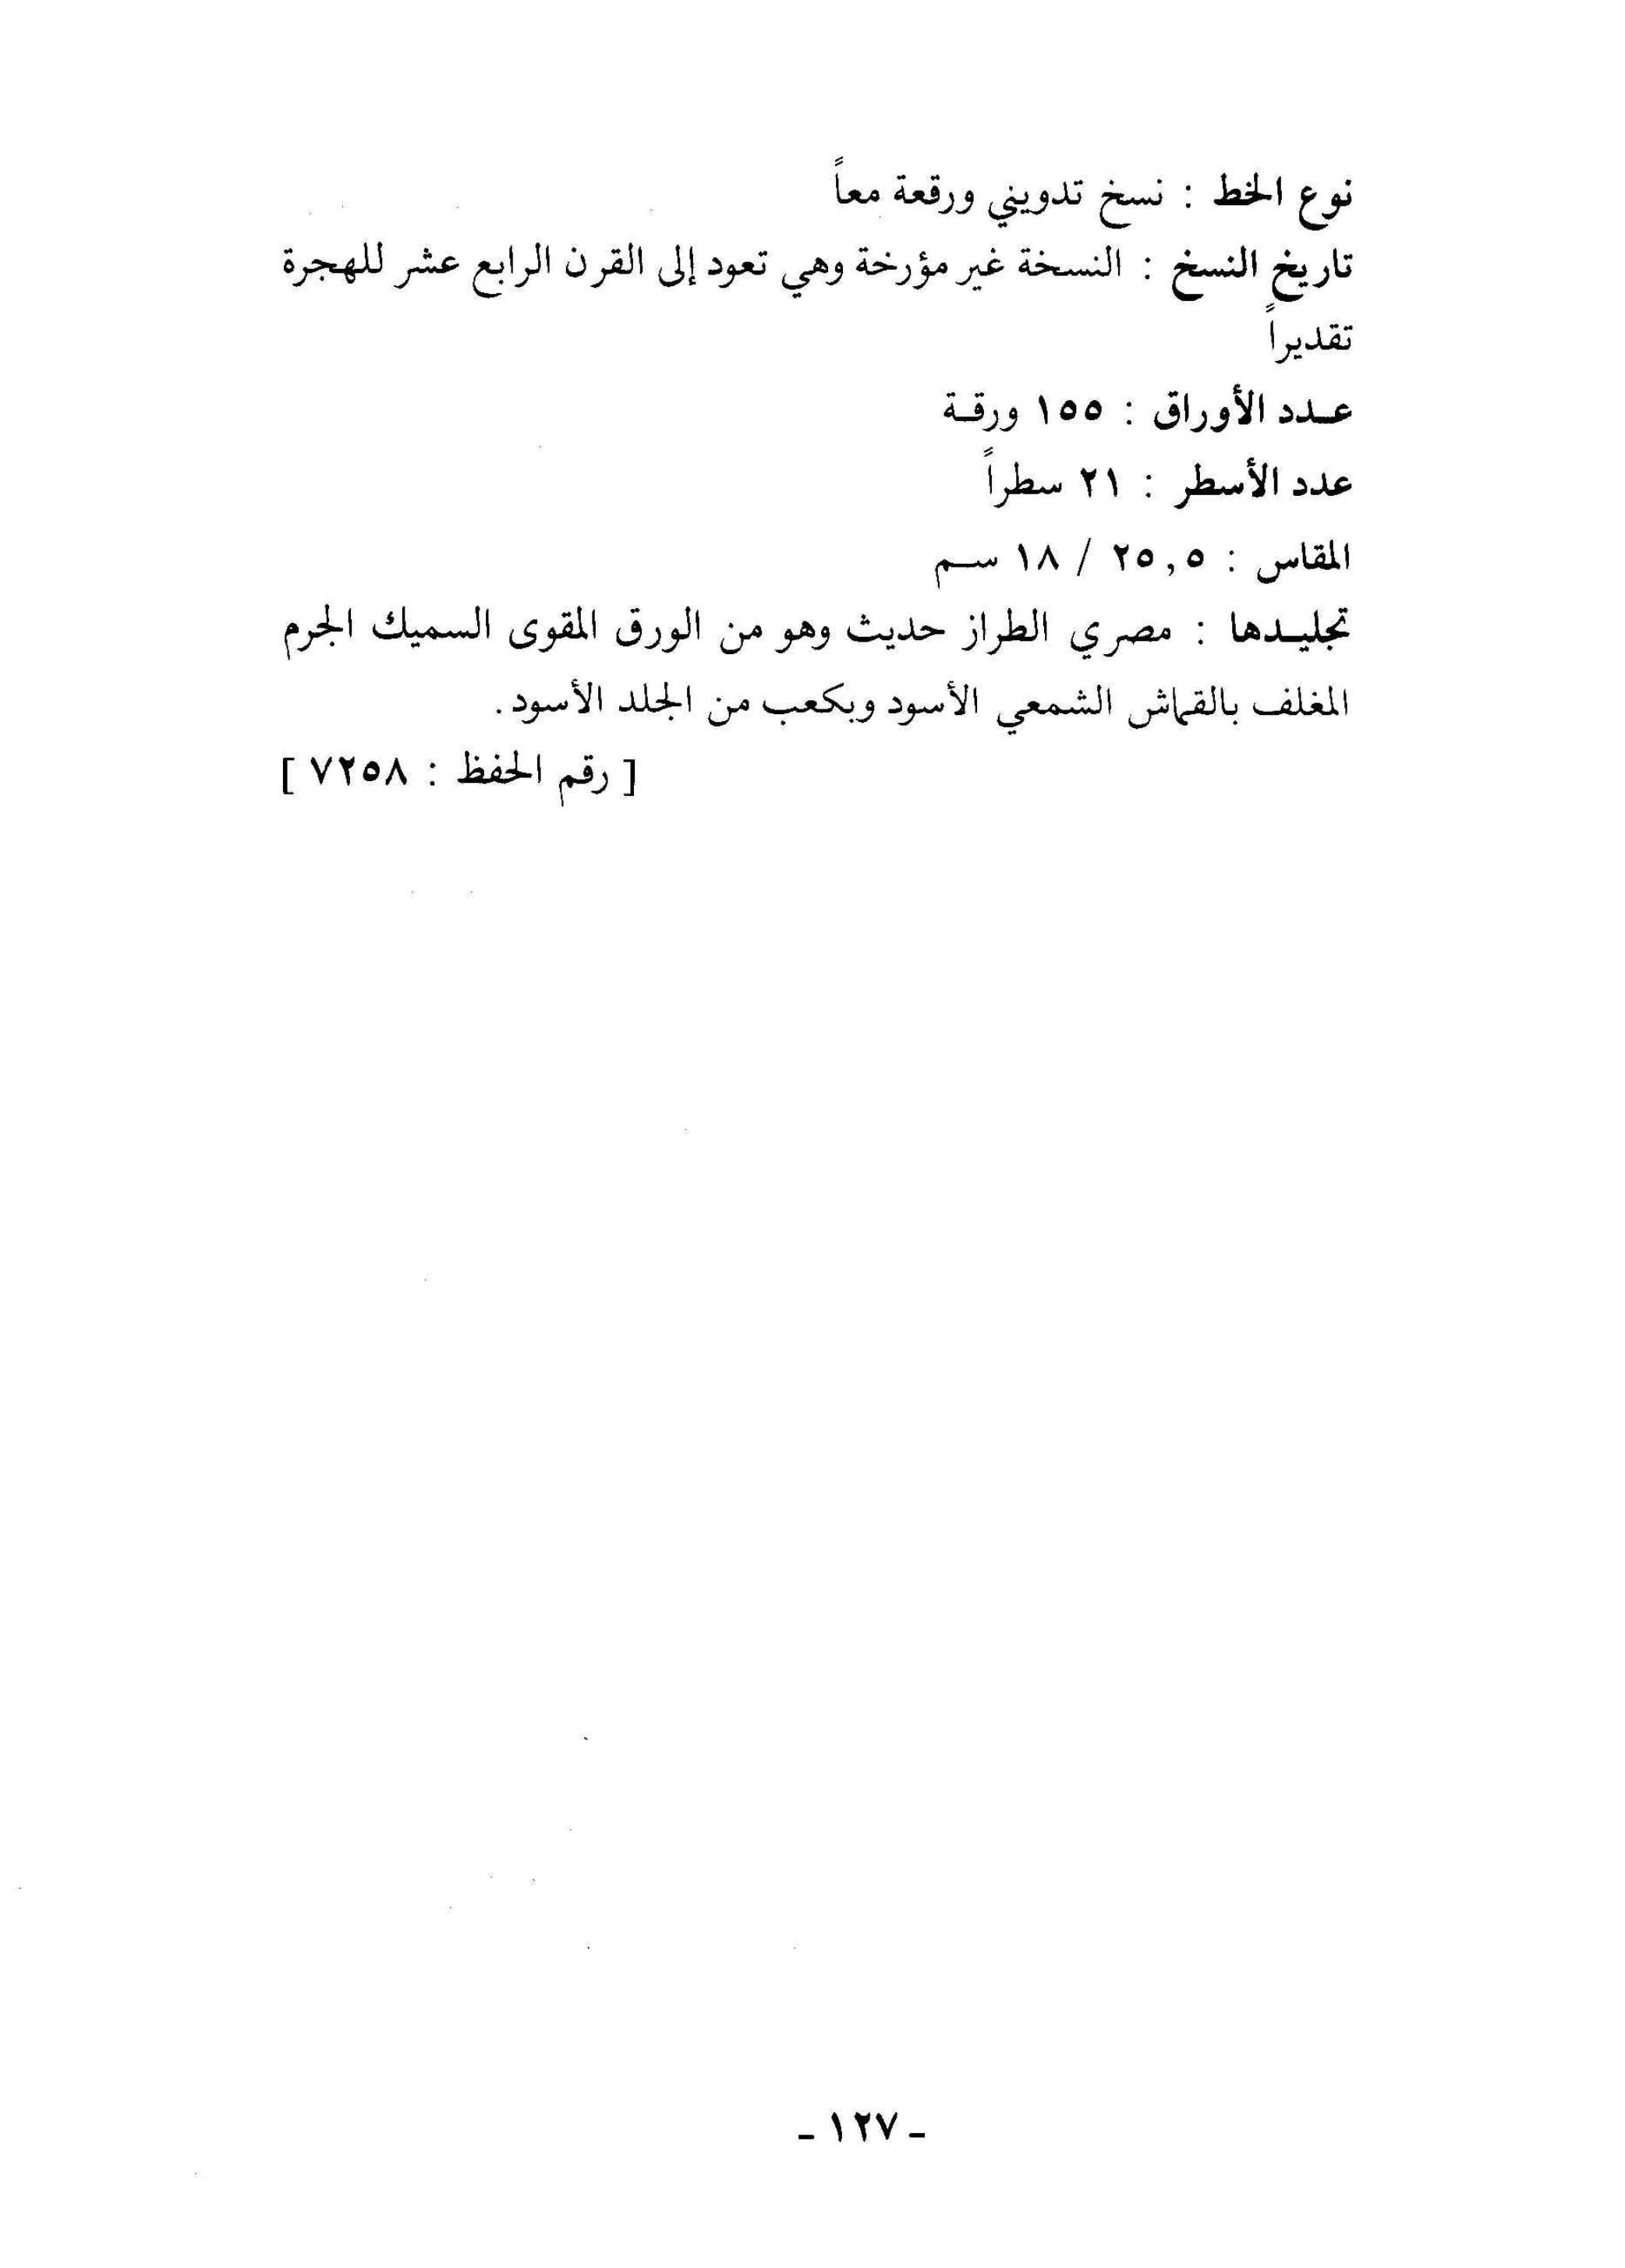 نوع الخط : نسخ تدويني ورقعة معاً
تاريخ النسخ : النسخة غير مؤرخة وهي تعود إلى القرن الرابع عشر للهجرة
تقديراً
عـدد الأوراق : ١٥٥ ورقـة
عدد الأسطر : ٢١ سطراً
المقاس : ٢٥,٥ / ١٨ سـم
تجليـدها : مصري الطراز حديث وهو من الورق المقوى السميك الجرم
المغلف بالقماش الشمعي الأسود وبكعب من الجلد الأسود .
[ رقم الحفظ : ٧٢٥٨ ]
ـ ١٢٧ ـ